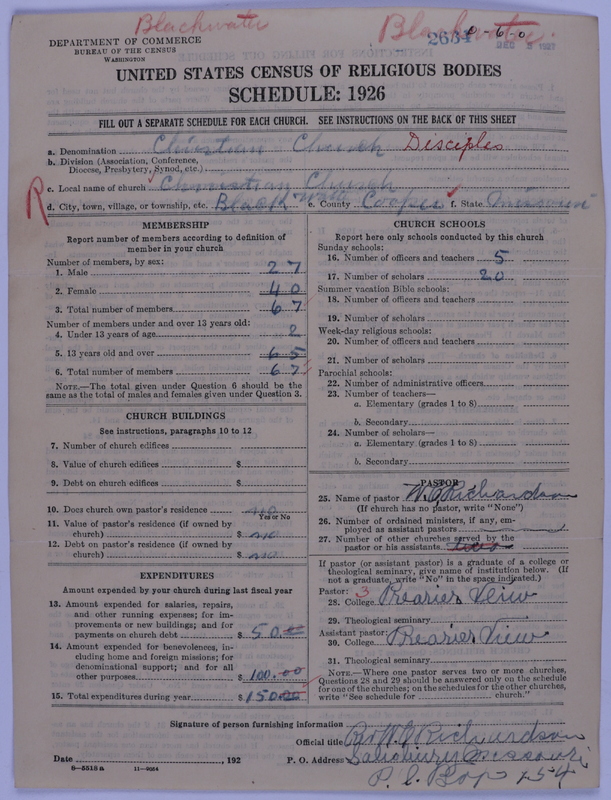 Blackwater
Blackwater
2634
0-6-0
DEPARTMENT OF COMMERCE
BUREAU OF THE CENSUS
WASHINGTON
UNITED STATES CENSUS OF RELIGIOUS BODIES
SCHEDULE: 1926
FILL OUT A SEPARATE SCHEDULE FOR EACH CHURCH. SEE INSTRUCTIONS ON THE BACK OF THIS SHEET
a. Denomination Christian Church Disciples
b. Division (Association, Conference, Diocese, Presbytery, Synod, etc.)
R
c. Local name of church Christian Church
d. City, town, village, or township, etc. Black Wat e. County Cooper f. State Missouri
MEMBERSHIP
Report number of members according to definition of member in your church
Number of members, by sex:
1. Male 27
2. Female 40
3. Total number of members 67
Number of members under and over 13 years old:
4. Under 13 years of age 2
5. 13 years old and over 65
6. Total number of members 67
NOTE.—The total given under Question 6 should be same as the total of males and females given under Question 3.
CHURCH BUILDINGS
See instructions, paragraphs 10 to 12
7. Number of church edifices
8. Value of church edifices $
9. Debt on church edifices $
10. Does church own pastor's residence no
Yes or No
11. Value of pastor's residence (if owned by church) $ no
12. Debt on pastor's residence (if owned by church) $ no
EXPENDITURES
Amount expended by your church during last fiscal year
13. Amount expended for salaries, repairs, and other running expenses; for improvements or new buildings; and for payments on church debt $ 50.00
14. Amount expended for benevolences, including home and foreign missions; for denominational support; and for all other purposes $ 100.00
15. Total expenditures during year $ 150.00
CHURCH SCHOOLS
Report here only schools conducted by this church
Sunday schools:
16. Number of officers and teachers 5
17. Number of scholars 20
Summer vacation Bible schools:
18. Number of officers and teachers
19. Number of scholars
Week-day religious schools:
20. Number of officers and teachers
21. Number of scholars
Parochial schools:
22. Number of administrative officers
23. Number of teachers—
a. Elementary (grades 1 to 8)
b. Secondary
24. Number of scholars—
a. Elementary (grades 1 to 8)
b. Secondary
PASTOR
25. Name of pastor W. C. Richardson
(If church has no pastor, write "None")
26. Number of ordained ministers, if any, employed as assistant pastors
27. Number of other churches served by the pastor or his assistants two
If pastor (or assistant pastor) is a graduate of a college or theological seminary, give name of institution below. (If not a graduate, write "No" in the space indicated.)
Pastor: 3
28. College
29. Theological seminary
Assistant pastor:
30. College
31. Theological seminary
NOTE.—Where one pastor serves two or more churches, Questions 28 and 29 should be answered only on the schedule for one of the churches; on the schedules for the other churches, write "See schedule for church."
Signature of person furnishing information
Official title W. C. Richardson
Date , 192 P. O. Address Salisbury Missouri
8-5518 a 11-9064